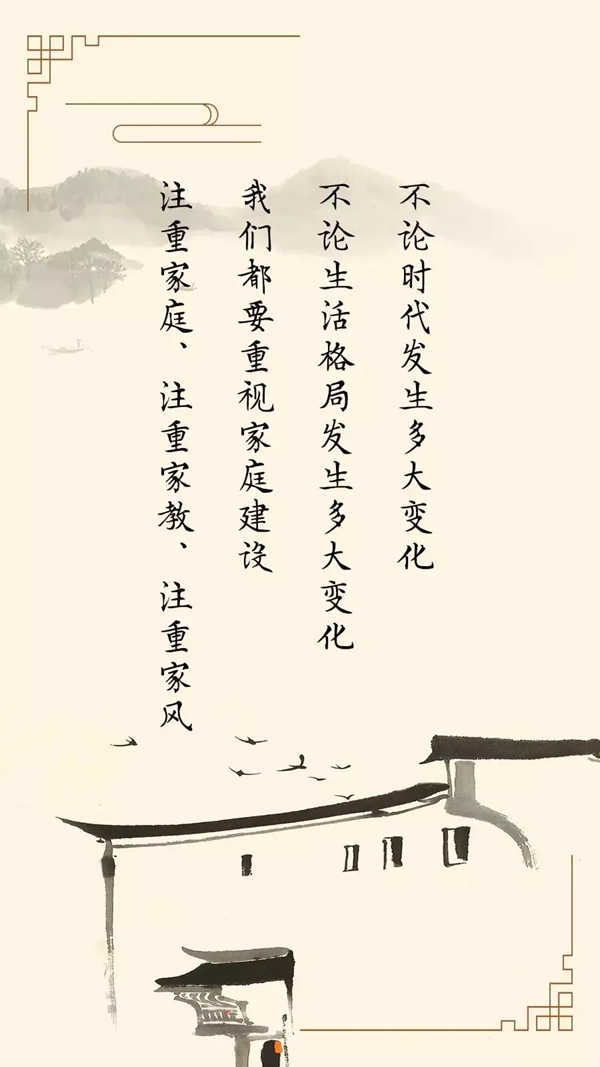 不论时代发生多大变化
不论生活格局发生多大变化
我们都要重视家庭建设
注重家庭、注重家教、注重家风